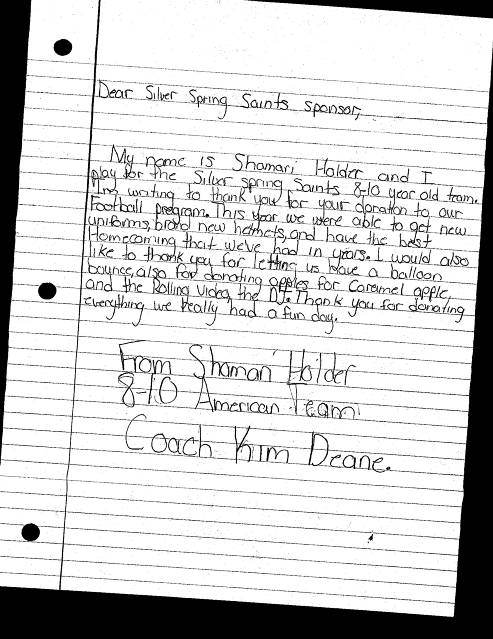 Dear Silver Spring Saints sponsor,
My name is Shamari Holder and I
play for the Silver spring Saints 8-10 year old team.
I'm writing to thank you for your donation to our
Football program. This year we were able to get new
uniforms, brand new helmets, and have the best
Homecoming that we've had in years. I would also
like to thank you for letting us have a balloon
bounce, also for donating apples for Caramel apple,
and the Rolling Video, the DJ. Thank you for donating
everything we really had a fun day.
From Shamari Holder
8-10 American Team
Coach Kim Deane.